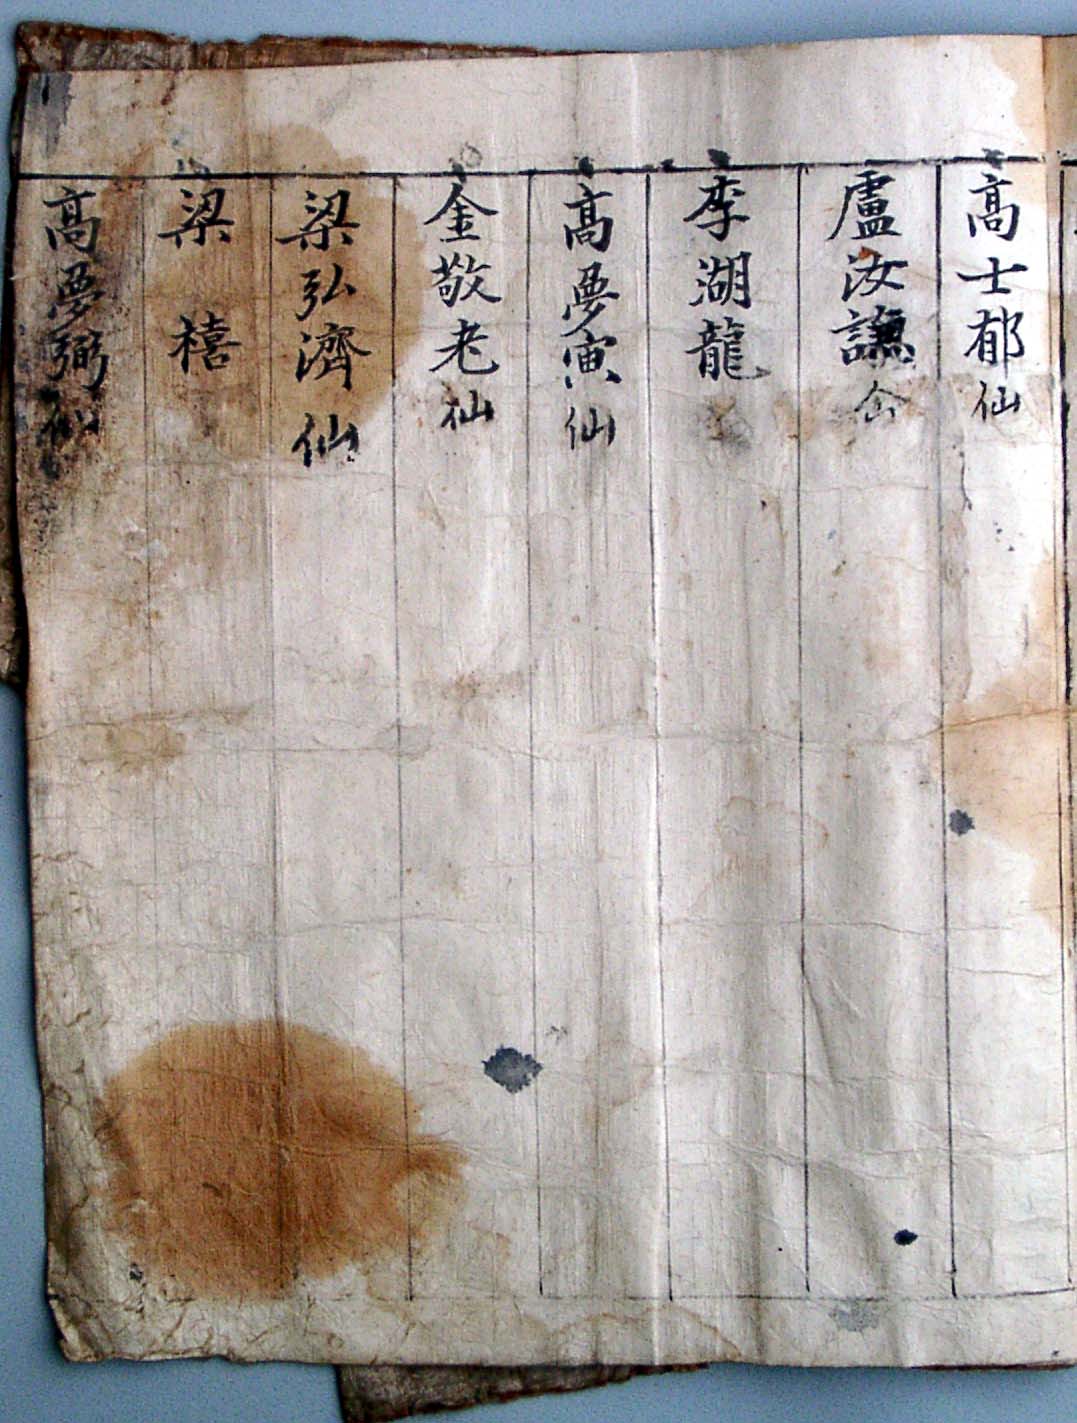 高士郁仙
盧汝謙仚
李湖龍
高夢寅仙
金敬老仙
梁弘濟仙
梁禧
高夢弼仙